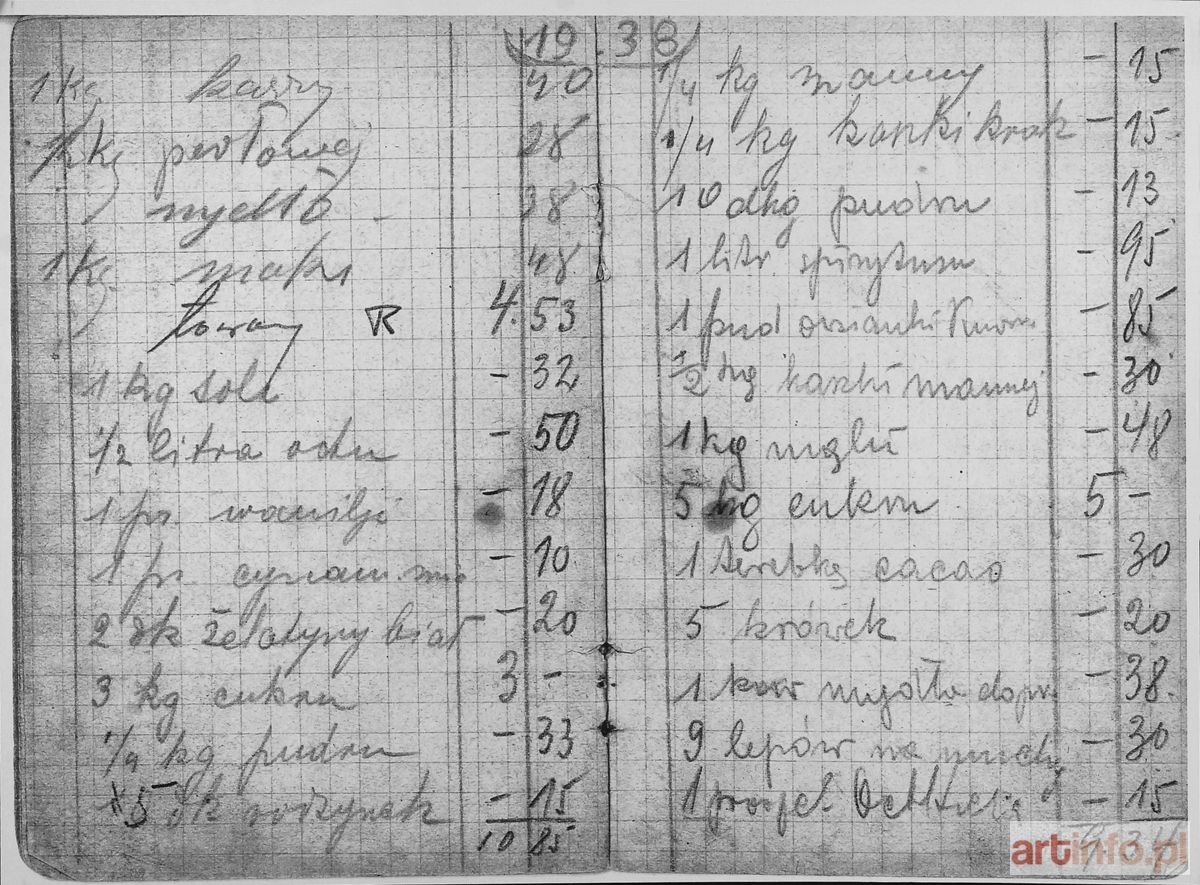 19 38
1 kg kaszy 40
1/2 kg perłowej 28
mydło - 38
1 kg mąki 48
towary R 4.53
1 kg soli - 32
1/2 litra octu - 50
1 pr. wanilji - 18
1 pr. cynam. - 10
2 dk żelatyny biał - 20
3 kg cukru 3 -
1/4 kg pudru - 33
15 dk rodzynek - 15
10 85
1/4 kg manny - 15
1/4 kg kaszki krak - 15
10 dkg pudru - 13
1 litr spirytusu - 95
1 pud owsianki - 85
1/2 kg kaszki mannej - 30
1 kg mąki - 48
5 kg cukru 5 -
1 torebkę cacao - 30
5 krówek - 20
1 kaw mydła do - 38
9 lepów na muchy - 30
1 - 15
artinfo.pl